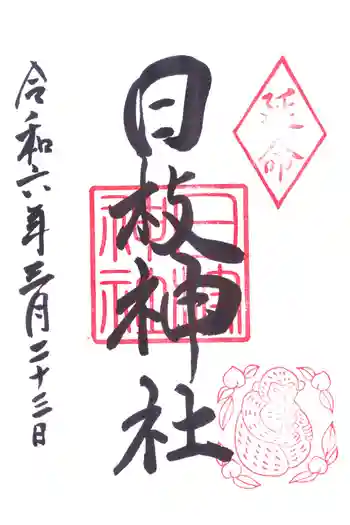 延命
日枝神社
日枝神社
令和六年三月二十三日